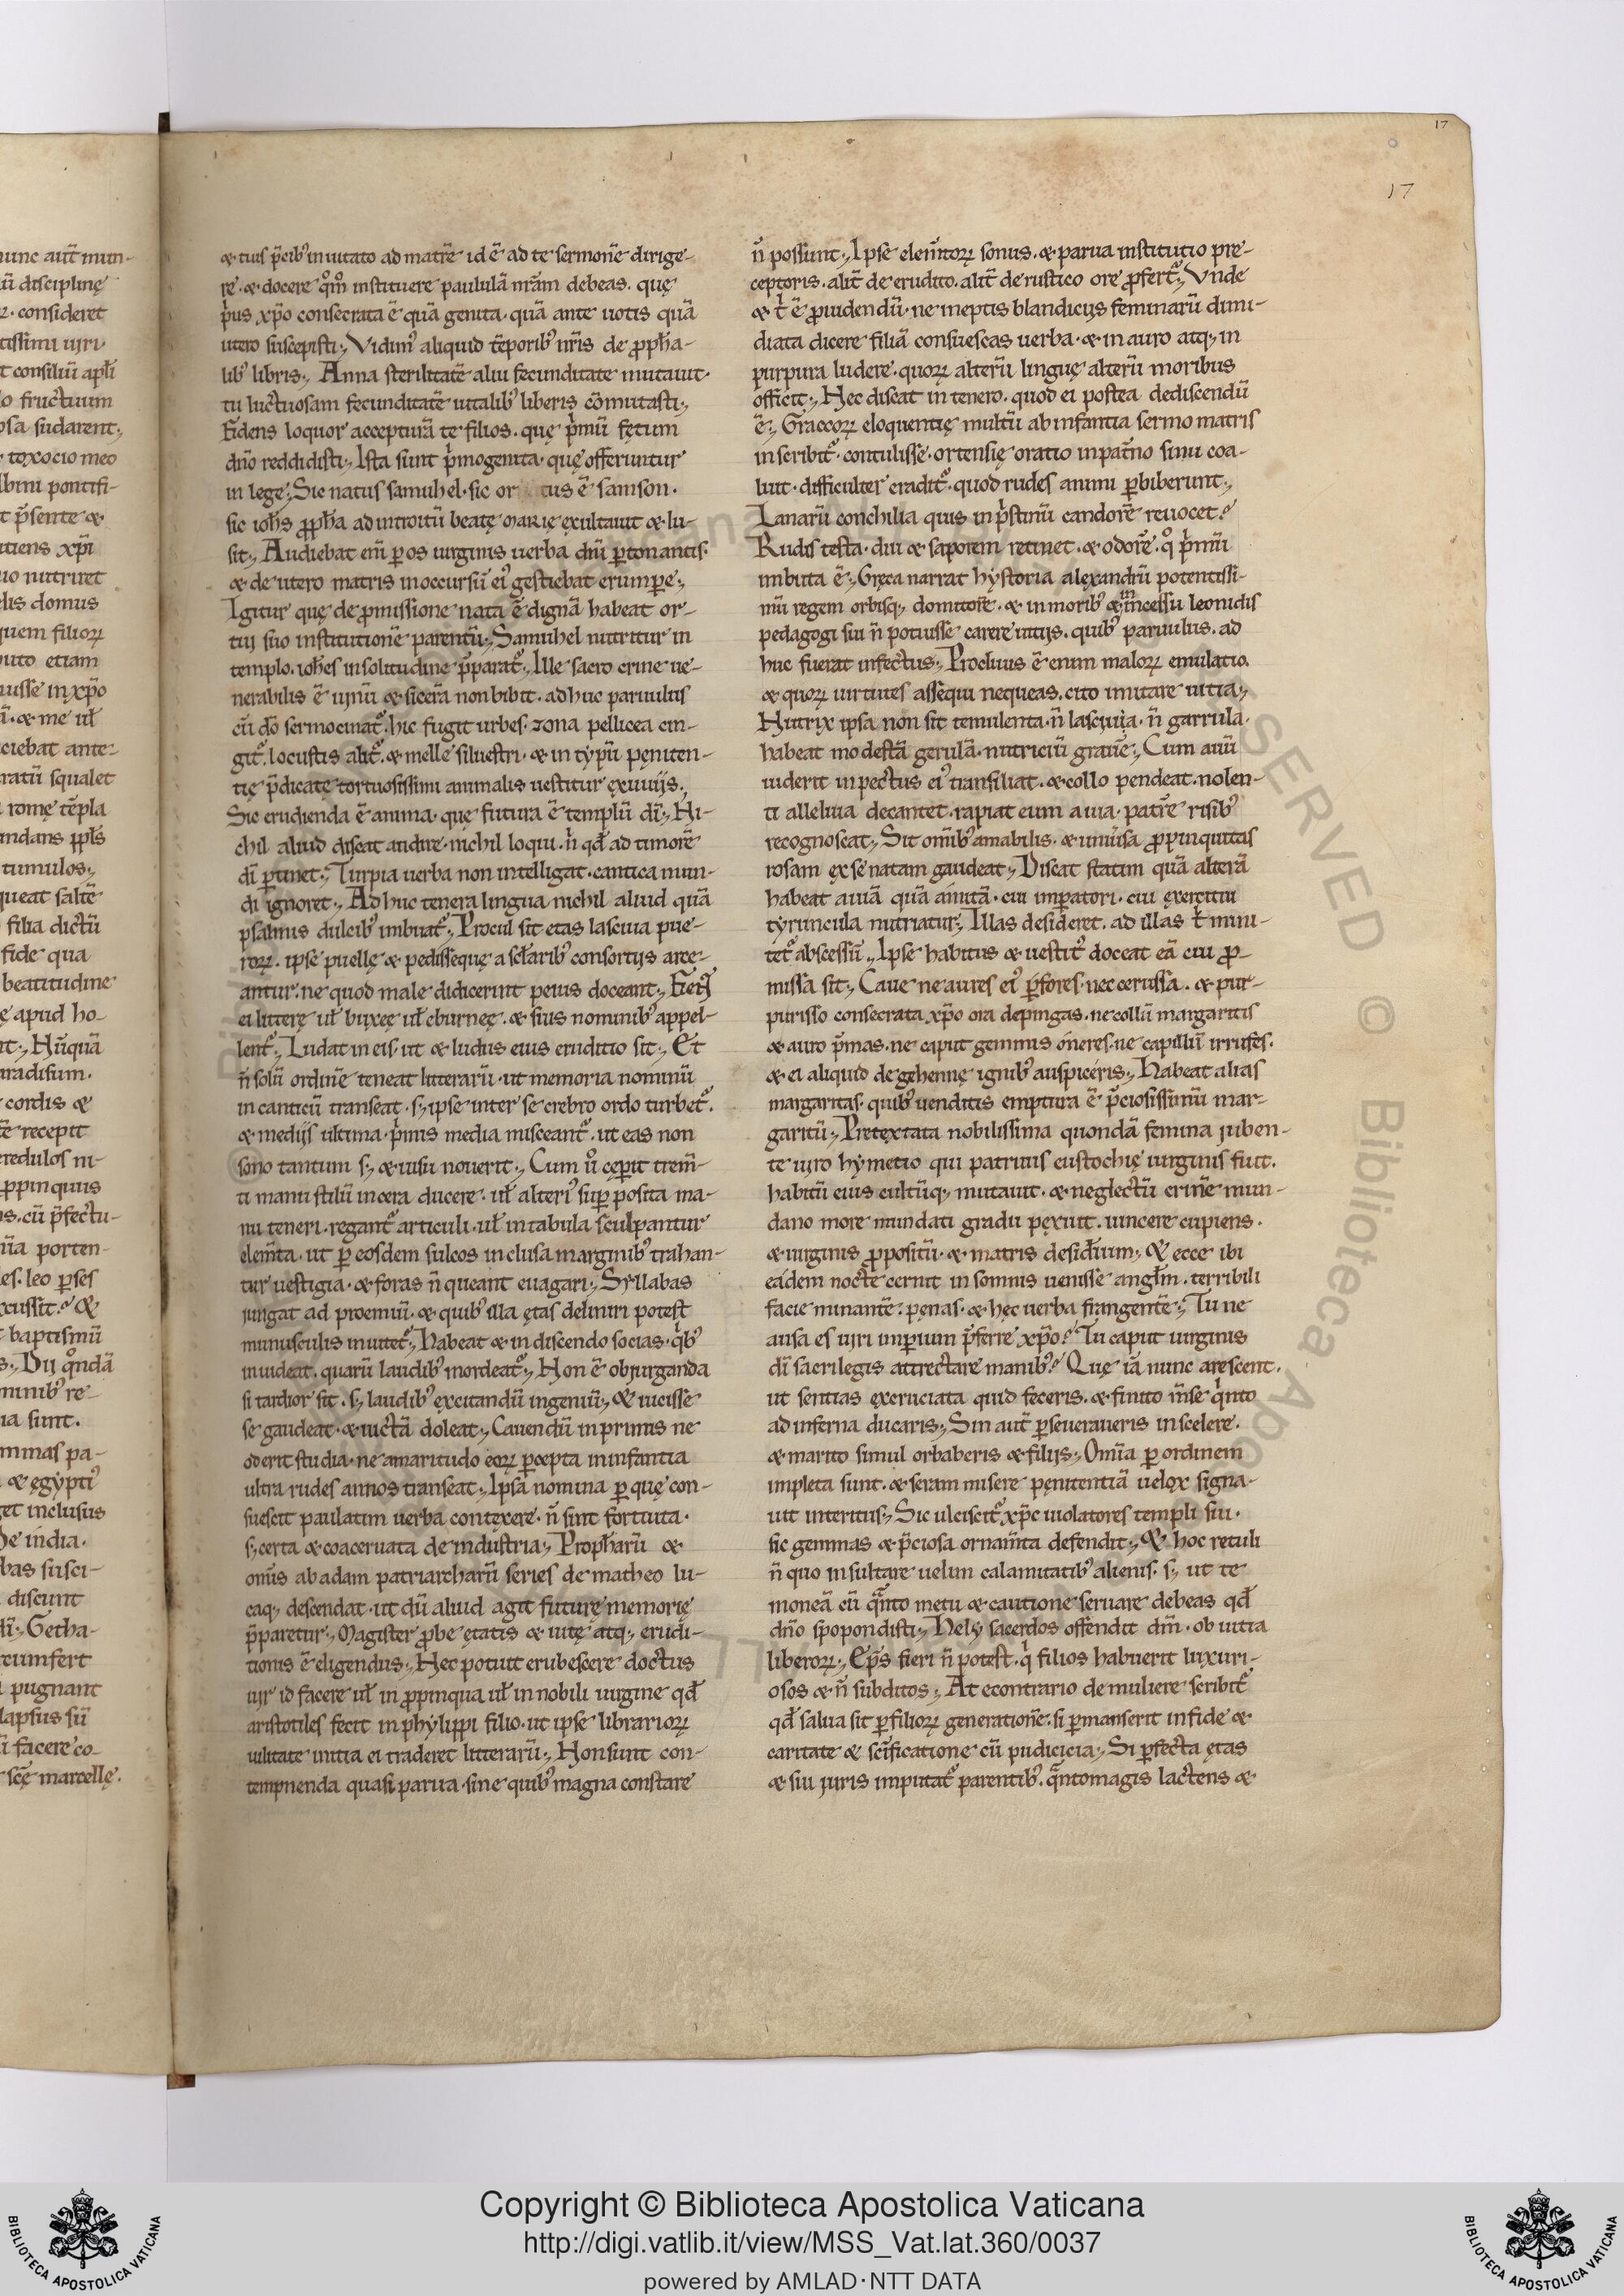 17
17
nunc aut̄ mun-
ū disciplinę
consideret
tissimi uiri
t consiliū apl̄i
o fructuum
osa sudarent
toxocio meo
lbini pontifi-
t p̄sente &
utiens xp̄i
uo nutriret
elis domus
quem filioꝝ
puto etiam
uisse in xp̄o
ā. & me ul̄
ciebat ante
ratū squalet
romę tēpla
undans ppl̄s
tumulos
queat saltē
filia dictū
fide qua
beatitudine
ę apud ho-
nt. Nūquā
aradisum.
cordis &
tē recepit
credulos ni-
ꝓpinquus
os. cū p̄fectu-
nīa porten-
es. leo ꝑses
xcussit? &
baptismū
s. Dij qͦndā
minibꝰ re-
ia sunt.
mmas pa-
& ęgypti
get inclusus
De india.
bas susci-
discunt
dī. Getha-
rcumfert
pugnant
lapsus sū
ū facere co-
scę̄ marcellę.
& tuis p̄cibꝰ inuitato ad matrē id ē ad te sermonē dirige-
re. & docere qͦm̊ instituere paululā nr̄am debeas. quę
pͥus xp̄o consecrata ē quā genita. quā ante uotis quā
utero suscepisti. Vidimꝰ aliquid tēporibꝰ nr̄is de ꝓph̄a-
libꝰ libris. Anna sterilitatē alui fecunditate mutauit.
tu luctuosam fecunditatē uitalibꝰ liberis cōmutasti.
Fidens loquor accepturā te filios. quę pͥmū fętum
dn̄o reddidisti. Ista sunt pͥmogenita. quę offeruntur
in lege. Sic natus samuhel. sic or tus ē samson.
sic ioh̄s ꝓph̄a ad introitū beatę MARIę exultauit & lu-
sit. Audiebat em̄ ꝑ os uirginis uerba dn̄i ꝑtonantis.
& de utero matris in occursū eiꝰ gestiebat erumꝑe.
Igitur quę de ꝓmissione nata ē dignā habeat or-
tu suo institutionē parentū. Samuhel nutritur in
templo. ioh̄es in solitudine p̄paratᷣ. Ille sacro crine ue-
nerabilis ē uinū & sicerā non bibit. adhuc paruulus
cū dō sermocinatᷣ. hic fugit urbes. zona pellicea cin-
gitᷣ. locustis alitᷣ. & melle siluestri. & in typū pęniten-
tię p̄dicatę tortuosissimi animalis uestitur exuuijs.
Sic erudienda ē anima. quę futura ē templū dī. Ni-
chil aliud discat audire. nichil loqui. nͥ qd̄ ad timorē
dī ꝑtinet. Turpia uerba non intelligat. cantica mun-
di ignoret. Adhuc tenera lingua nichil aliud quā
psalmis dulcibꝰ imbuatᷣ. Procul sit etas lasciua pue-
roꝝ. ipse puellę & pedisseque a sęl̄aribꝰ consortijs arce-
antur. ne quod male didicerint peius doceant. Fiant
ei litterę ul̄ buxeę ul̄ eburneę. & suis nominibꝰ appel-
lentᷣ. Ludat in eis. ut & ludus eius eruditio sit. Et
n̄ solū ordinē teneat litterarū. ut memoria nominū
in canticū transeat. s; ipse inter se crebro ordo turbetᷣ.
& medijs ultima. pͥmis media misceantᷣ. ut eas non
sono tantum s; & uisu nouerit. Cum uͦ cęperit trem̄-
ti manu stilū in cera ducere. ul̄ alteriꝰ suꝑposita ma-
nu teneri regantᷣ articuli. ul̄ in tabula sculpantur
elem̄ta. ut ꝑ eosdem sulcos inclusa marginibꝰ trahan-
tur uestigia. & foras n̄ queant euagari. Syllabas
jungat ad proemiū. & quibꝰ illa ętas deliniri potest
munusculis inuitetᷣ. Habeat & in discendo socias. qͥbꝰ
inuideat. quarū laudibꝰ mordeatᷣ. Non ē objurganda
si tardior sit. s; laudibꝰ excitandū ingeniū. & uicisse
se gaudeat. & uictā doleat. Cauendū in primis ne
oderit studia. ne amaritudo eoꝝ ꝑcepta in infantia
ultra rudes annos transeat. Ipsa nomina ꝑ quę con-
suescit paulatim uerba contexere. n̄ sint fortuita.
s; certa & coaceruata de industria. Proph̄arū &
omīs ab adam patriarcharū series de matheo lu-
caq; descendat. ut dū aliud agit futurę memorię
p̄paretur. Magister ꝓbe ętatis & uitę atq; erudi-
tionis ē eligendus. Nec potuit erubescere doctus
uir id facere ul̄ in ꝓpinqua ul̄ in nobili uirgine qd̄
aristotiles fecit in phylippi filio. ut ipse librarioꝝ
uilitate initia ei traderet litterarū. Non sunt con-
tempnenda quasi parua. sine quibꝰ magna constare
n̄ possunt. Ipse elem̄toꝝ sonus. & parua institutio pre-
ceptoris. alit̄ de erudito. alit̄ de rustico ore ꝓfertᷣ. Vnde
& tͥ ē ꝓuidendū. ne ineptis blandicijs feminarū dimi-
diata dicere filiā consuescas uerba. & in auro atq; in
purpura ludere. quoꝝ alterū linguę alterū moribus
officit. Nec discat in tenero. quod ei postea dediscendū
ē. Graccoꝝ eloquentię multū ab infantia sermo matris
inscribitᷣ. contulisse. ortensię oratio in pat̄no sinu coa-
luit. difficulter eraditᷣ. quod rudes animi ꝑbiberunt.
Lanarū conchilia quis in pͥstinū candorē reuocet?
Rudis testa. diu & saporem retinet. & odorē. qͦ pͥmū
imbuta ē. Gręca narrat hystoria alexandrū potentissi-
mū regem orbisq; domitorē. & in moribꝰ & in incessu leonidis
pedagogi sui n̄ potuisse carere uitijs. quibꝰ paruulus. ad
huc fuerat infectus. Procliuis ē enim maloꝝ emulatio.
& quoꝝ uirtutes assequi nequeas. cito imitare uitia.
Nutrix ipsa non sit temulenta. n̄ lasciuia. n̄ garrula.
habeat modestā gerulā. nutriciū grauē. Cum auū
uiderit in pectus eiꝰ transiliat. & collo pendeat. nolen-
ti alleluia decantet. rapiat eum auia. patrē risibꝰ
recognoscat. Sit om̄ibꝰ amabilis. & uniu̓sa ꝓpinquitas
rosam ex se natam gaudeat. Discat statim quā alterā
habeat auiā quā amitā. cui imꝑatori. cui exercitui
tyruncula nutriatur. Illas desideret. ad illas tͥ mini-
tetᷣ abscessū. Ipse habitus & uestitꝰ doceat eā cui ꝓ-
missa sit. Caue ne aures eiꝰ ꝑfores. nec cerussa. & pur-
purisso consecrata xp̄o ora depingas. ne collū margaritis
& auro p̄mas. ne caput gemmis oneres. ne capillū irrufes.
& ei aliquid de gehennę ignibꝰ auspiceris. Habeat alias
margaritas. quibꝰ uenditis emptura ē p̄ciosissimū mar-
garitū. Pretextata nobilissima quondā femina juben-
te uiro hymetio qui patruus eustochię uirginis fuit.
habitū eius cultūq; mutauit. & neglectū crinē mun-
dano more mundati gradu pexuit. uincere cupiens.
& uirginis ꝓpositū. & matris desid̄ium. & ecce ibi
eadem nocte cernit in somnis uenisse angl̄m. terribili
facie minantē. pęnas. & hęc uerba frangentē. Tu ne
ausa es uiri imꝑium p̄ferre xp̄o? Tu caput uirginis
dī sacrilegis attrectare manibꝰ? Quę iā nunc arescent.
ut sentias excruciata quid feceris. & finito m̄se qͥnto
ad inferna ducaris. Sin aut̄ ꝑseueraueris in scelere.
& marito simul orbaberis & filijs. Omīa ꝑ ordinem
impleta sunt. & seram misere pęnitentiā uelox signa-
uit interitus. Sic ulciscitᷣ xp̄c uiolatores templi sui.
sic gemmas & p̄ciosa ornam̄ta defendit. & hoc retuli
n̄ quo insultare uelim calamitatibꝰ alienis. s; ut te
moneā cū qͣnto metu & cautione seruare debeas qd̄
dn̄o spopondisti. Hely sacerdos offendit dm̄. ob uitia
liberoꝝ. Ep̄s fieri n̄ potest. qͥ filios habuerit luxuri-
osos & n̄ subditos. At econtrario de muliere scribitᷣ
qd̄ salua sit ꝑ filioꝝ generationē. si ꝑmanserit in fide &
caritate & scīficatione cū pudicicia. Si ꝑfecta ętas
& sui juris imputatᷣ parentibꝰ. qͣnto magis lactens &
Copyright © Biblioteca Apostolica Vaticana
http://digi.vatlib.it/view/MSS_Vat.lat.360/0037
powered by AMLAD·NTT DATA
BIBLIOTECA APOSTOLICA VATICANA
BIBLIOTECA APOSTOLICA VATICANA